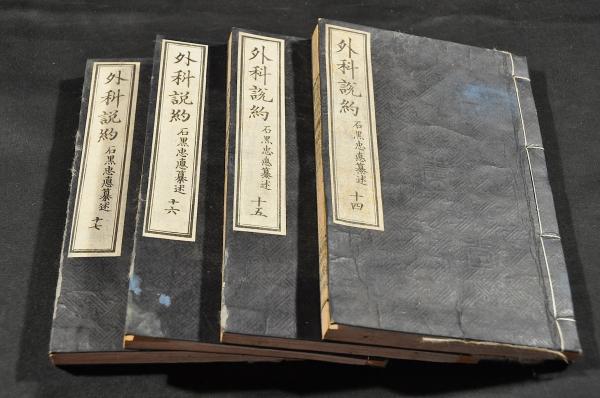 外科説約 石黒忠悳纂述 十四
外科説約 石黒忠悳纂述 十五
外科説約 石黒忠悳纂述 十六
外科説約 石黒忠悳纂述 十七